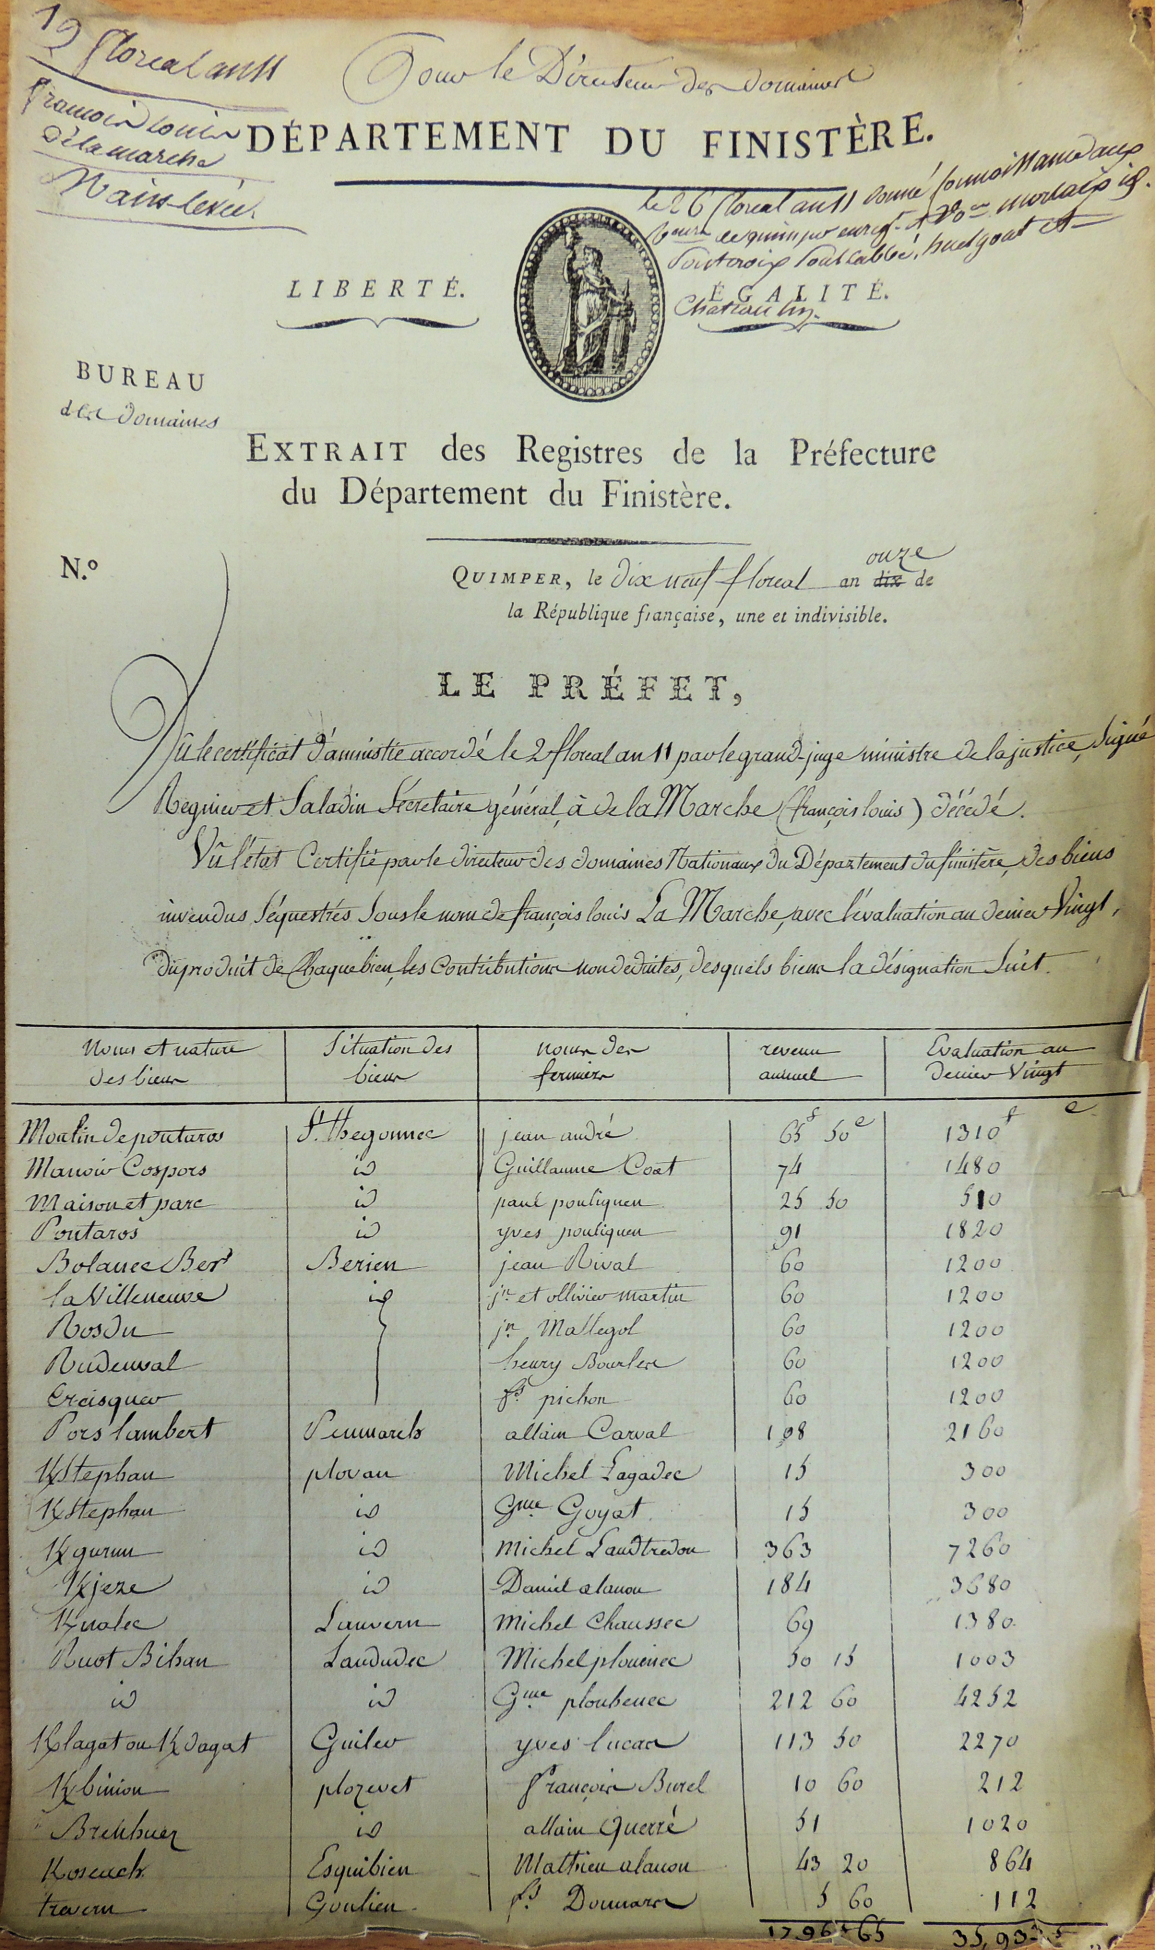 19 floreal an 11
Pour le Directeur des domaines
françois louis
Delamarche
Main levée.
DÉPARTEMENT DU FINISTÈRE.
le 26 floreal an 11 donné connoissance aux
de quimper enregt. et morlaix id.
Pontcroix Pontlabbé, huelgoat et
Chateaulin.
LIBERTÉ. ÉGALITÉ.
BUREAU
des Domaines
EXTRAIT des Registres de la Préfecture
du Département du Finistère.
N.º
onze
QUIMPER, le dix neuf floreal an dix de
la République française, une et indivisible.
LE PRÉFET,
Vû le certificat d'amnistie accordé le 2 floreal an 11 par le grand-juge ministre de la justice, signé
Regnier et Saladin Sécretaire général, à de la Marche (françois louis) décédé.
Vû l'état Certifié par le directeur des domaines Nationaux du Département du finistère, des biens
invendus séquestrés sous le nom de françois louis La Marche, avec l'évaluation au denier Vingt,
du produit de Chaque bien, les Contributions non deduites, desquels biens la désignation suit.
Noms et nature des biens | Situation des biens | noms des fermiers | revenu annuel | Evaluation au Denier Vingt
Moulin de pontaros | St. thegonnec | jean andré | 65f 50c | 1310f c
Manoir Cospors | id | Guillaume Coat | 74 | 1480
Maison et parc | id | paul pouliquen | 25 50 | 510
Pontaros | id | yves pouliquen | 91 | 1820
Bolanec Ber | Berien | jean Rival | 60 | 1200
la Villeneuve | id | jn. et ollivier martin | 60 | 1200
Rosdu | jn. Mallegol | 60 | 1200
Rudenval | henry Bourles | 60 | 1200
Croisquer | fs. pichon | 60 | 1200
Pors lambert | Penmarch | allain Carval | 108 | 2160
Kstephan | plovan | Michel Lagadec | 15 | 300
Kstephan | id | Gme. Goyat | 15 | 300
Kgurun | id | Michel Landtredon | 363 | 7260
Kjeze | id | Daniel alanou | 184 | 3680
Kualec | Lanvern | Michel Chaussec | 69 | 1380
Ruot Bihan | Landudec | Michel plouenec | 50 15 | 1003
id | id | Gme. plouhenec | 212 60 | 4252
Klagat ou Kdagat | Guiler | yves lucas | 113 50 | 2270
Kbinion | plozevet | françois Burel | 10 60 | 212
Brenhuez | id | allain Querré | 51 | 1020
Koseach | Esquibien | Mathieu alanou | 43 20 | 864
travern | Goulien | fs. Donnars | 5 60 | 112
1796f 65 | 35,933